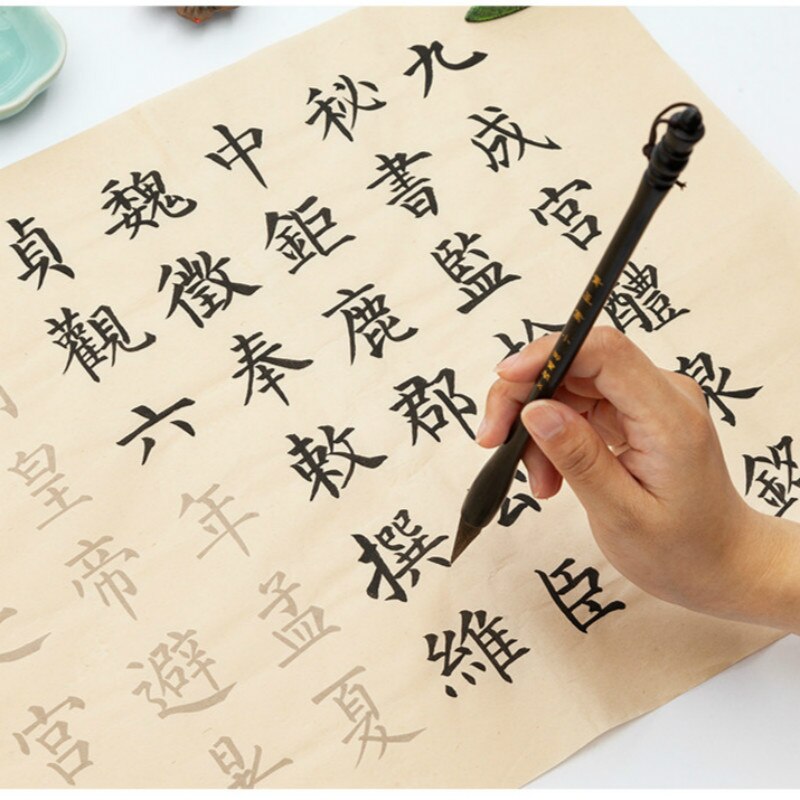 九成宮醴泉銘
秘書監
中鉅鹿郡公臣
魏徵奉敕撰維
貞觀六年孟夏
皇帝避
宮